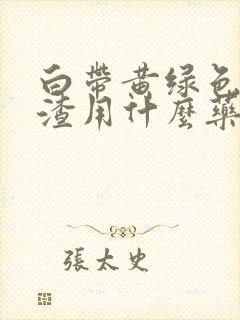 白帶黄绿色
渣用什麼藥
張太史